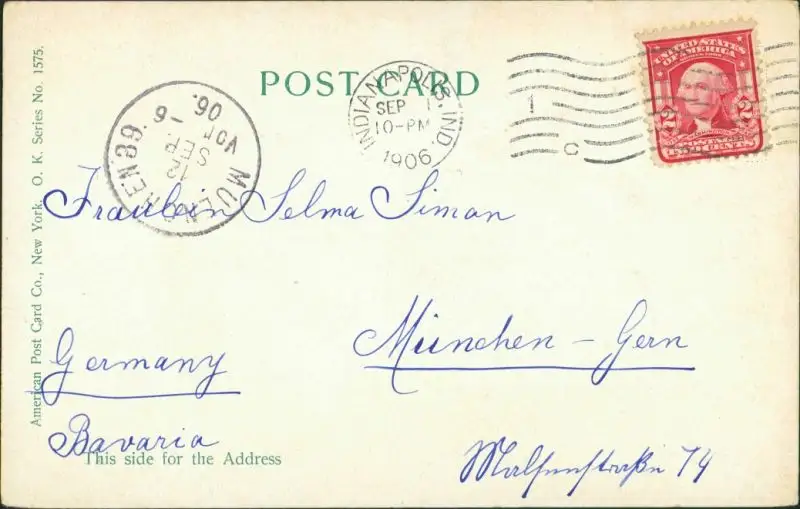 POST CARD
INDIANAPOLIS, IND
SEP 1
10-PM
1906
1
C
UNITED STATES
OF AMERICA
2 2
TWO CENTS
MUENCHEN 39.
12
SEP
VOR
6-
06.
Fräulein Selma Simon
München - Gern
Germany
Bavaria
74
This side for the Address
American Post Card Co., New York. O. K. Series No. 1575.